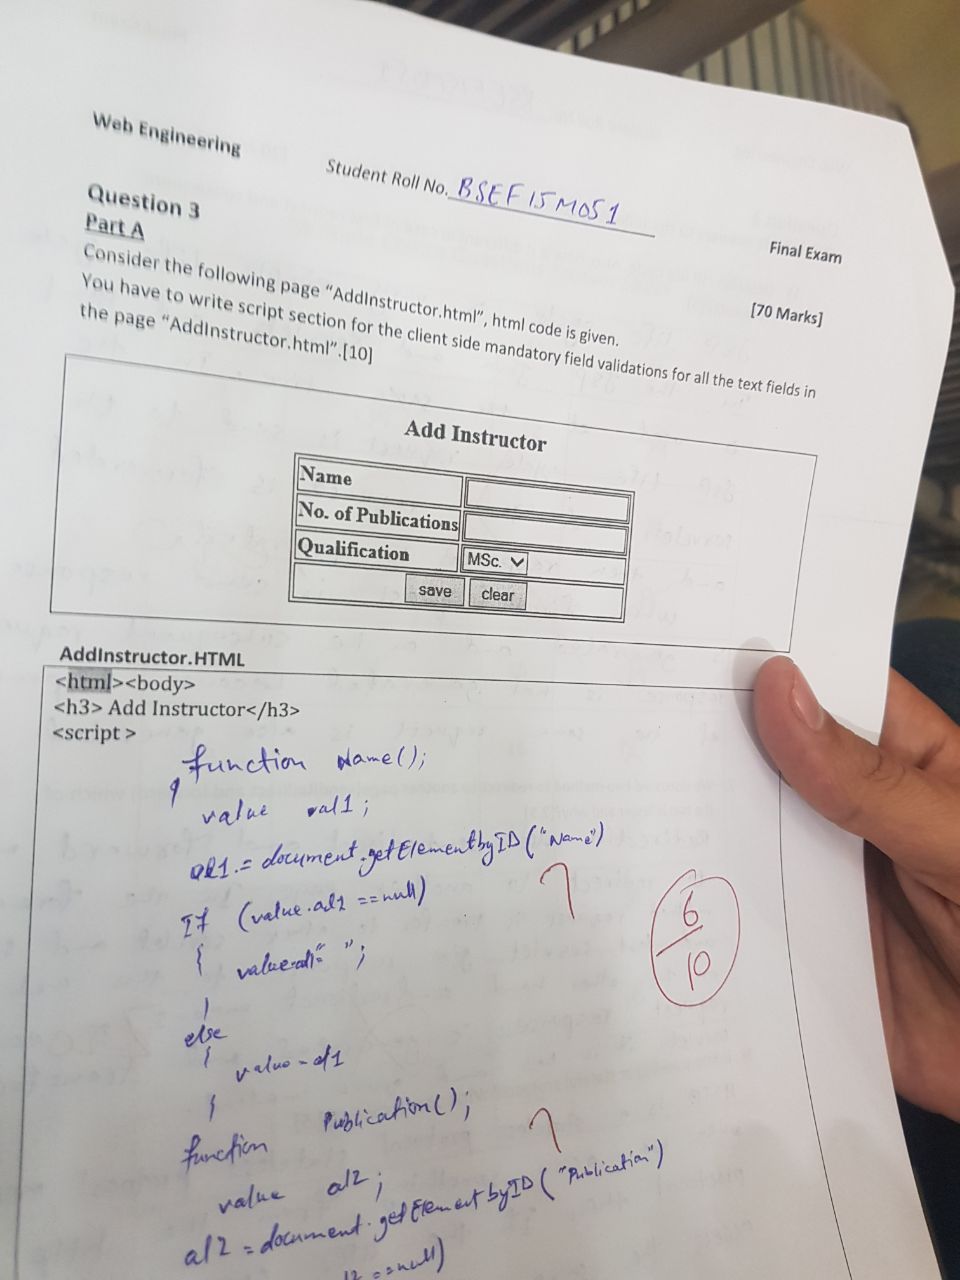 Web Engineering
Student Roll No. BSEF15M051
Final Exam
Question 3
[70 Marks]
Part A
Consider the following page "AddInstructor.html", html code is given.
You have to write script section for the client side mandatory field validations for all the text fields in
the page "AddInstructor.html".[10]
Add Instructor
Name
No. of Publications
Qualification MSc.
save clear
AddInstructor.HTML
<html><body>
<h3> Add Instructor</h3>
<script >
function Name();
{
value val1;
= document.getElementbyID("Name")
If (value.al1 ==null)
{ " ";
}
else
{ value = al1
}
function Publication();
value al2;
al2 = document.getElementbyID("Publication")
==null)
6
10